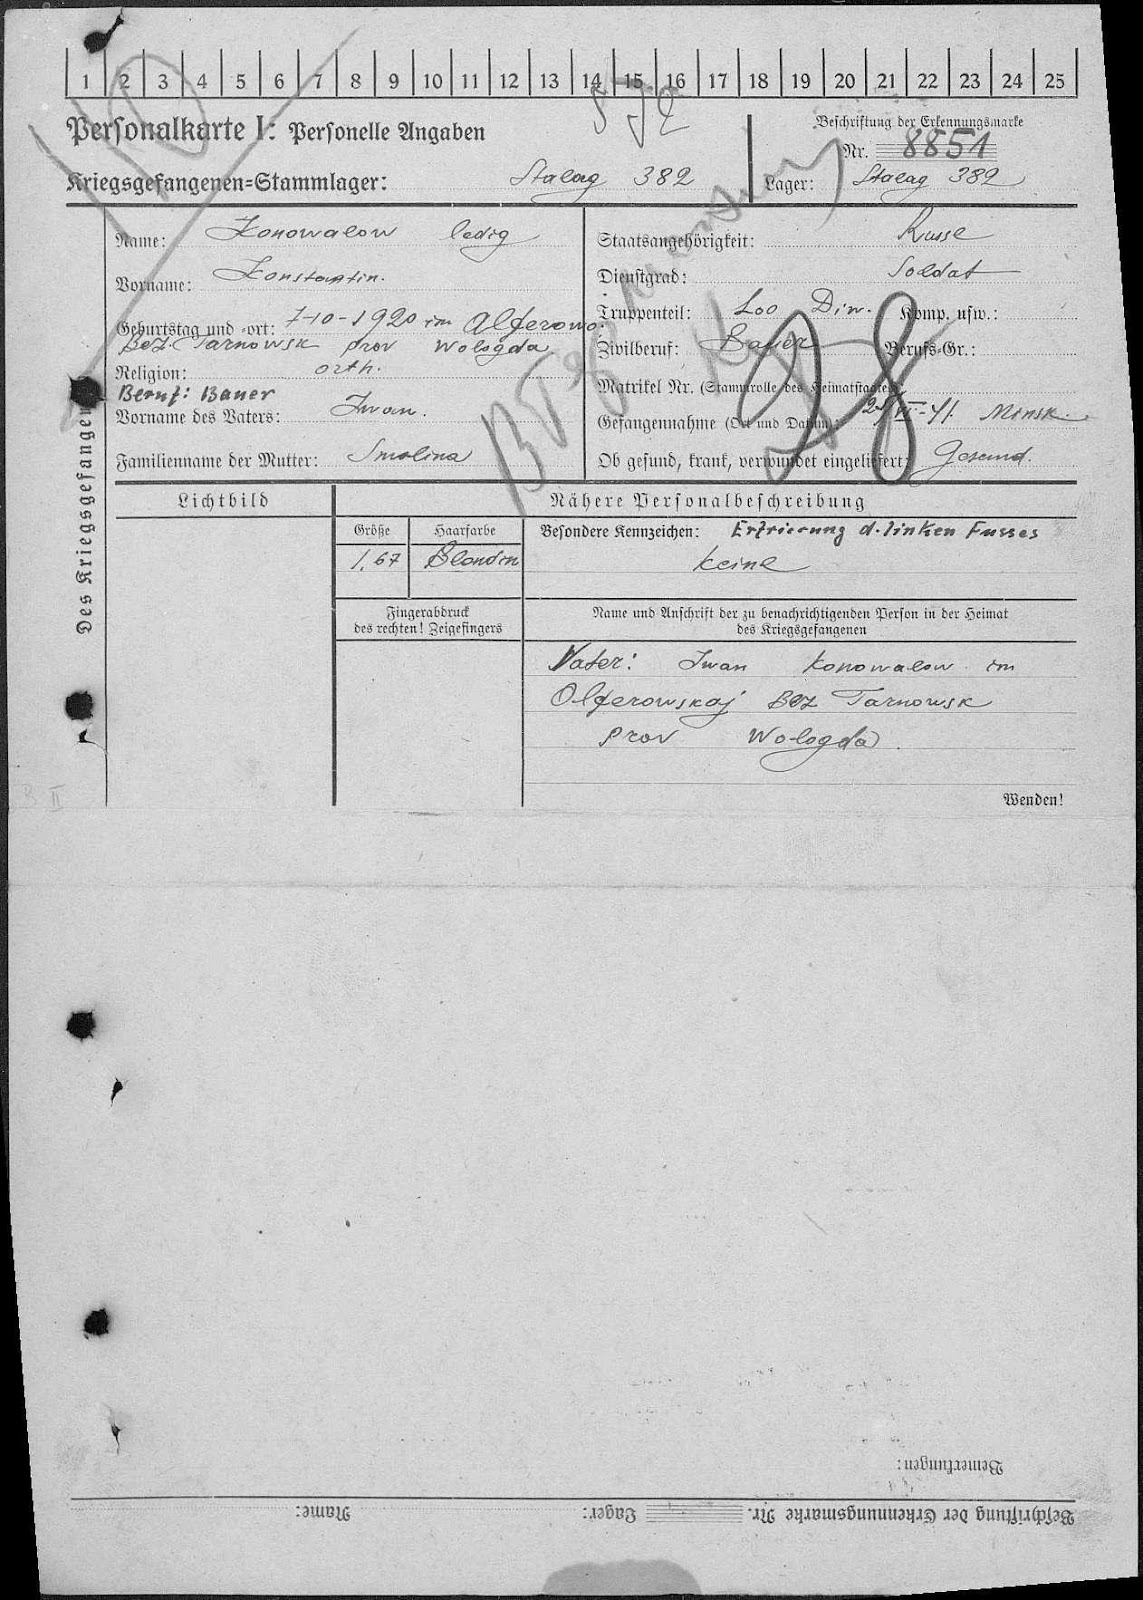 1 2 3 4 5 6 7 8 9 10 11 12 13 14 15 16 17 18 19 20 21 22 23 24 25
Personalkarte I: Personelle Angaben
Beschriftung der Erkennungsmarke
Nr. 8851
Kriegsgefangenen=Stammlager: Stalag 382
Lager: Stalag 382
Des Kriegsgefangenen
Name: Konowalow ledig
Vorname: Konstantin.
Geburtstag und -ort: 7-10-1920 im Alferowo.
Bez. Tarnowsk prov Wologda
Religion: orth.
Beruf: Bauer
Vorname des Vaters: Iwan.
Familienname der Mutter: Smolina
Staatsangehörigkeit: Russe
Dienstgrad: Soldat
Truppenteil: 100 Diw. Komp. usw.:
Zivilberuf: Bauer Berufs-Gr.:
Matrikel Nr. (Stammrolle des Heimatstaates):
Gefangennahme (Ort und Datum): 25/VI-41. Minsk.
Ob gesund, krank, verwundet eingeliefert: Gesund.
Lichtbild
Nähere Personalbeschreibung
Größe Haarfarbe
1,67 Blondin
Besondere Kennzeichen: Erfrierung d. linken Fusses
keine
Fingerabdruck
des rechten! Zeigefingers
Name und Anschrift der zu benachrichtigenden Person in der Heimat
des Kriegsgefangenen
Vater: Iwan Konowalow im
Olferowskaj Bez Tarnowsk
prov Wologda.
Wenden!
Bemerkungen:
Beschriftung der Erkennungsmarke Nr. Lager: Name: